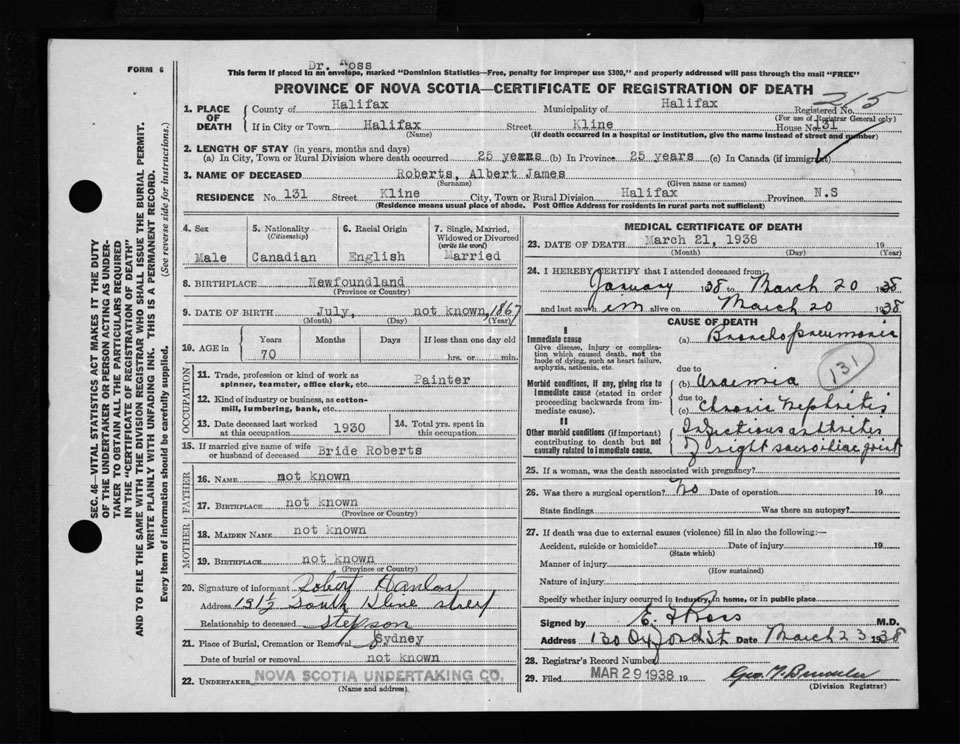 Dr. Ross
FORM 6
This form if placed in an envelope, marked "Dominion Statistics—Free, penalty for improper use $300," and properly addressed will pass through the mail "FREE"
PROVINCE OF NOVA SCOTIA—CERTIFICATE OF REGISTRATION OF DEATH
215
1. PLACE OF DEATH
County of Halifax Municipality of Halifax Registered No.
(For use of Registrar General only)
If in City or Town Halifax Street Kline House No. 131
(Name) (If death occurred in a hospital or institution, give the name instead of street and number)
2. LENGTH OF STAY (in years, months and days)
(a) In City, Town or Rural Division where death occurred 25 years (b) In Province 25 years (c) In Canada (if immigrant)
3. NAME OF DECEASED Roberts, Albert James
(Surname) (Given name or names)
RESIDENCE No. 131 Street Kline City, Town or Rural Division Halifax Province N.S
(Residence means usual place of abode. Post Office Address for residents in rural parts not sufficient)
4. Sex 5. Nationality (Citizenship) 6. Racial Origin 7. Single, Married, Widowed or Divorced (write the word)
Male Canadian English Married
8. BIRTHPLACE Newfoundland
(Province or Country)
9. DATE OF BIRTH July, not known, 1867
(Month) (Day) (Year)
10. AGE in Years Months Days If less than one day old
70 hrs. or min.
OCCUPATION
11. Trade, profession or kind of work as spinner, teamster, office clerk, etc. Painter
12. Kind of industry or business, as cotton-mill, lumbering, bank, etc.
13. Date deceased last worked at this occupation 1930 14. Total yrs. spent in this occupation
15. If married give name of wife or husband of deceased Bride Roberts
FATHER
16. NAME not known
17. BIRTHPLACE not known
(Province or Country)
MOTHER
18. MAIDEN NAME not known
19. BIRTHPLACE not known
(Province or Country)
20. Signature of informant Robert Hanlon
Address 191½ South Kline street
Relationship to deceased stepson
21. Place of Burial, Cremation or Removal Sydney
Date of burial or removal not known
22. UNDERTAKER NOVA SCOTIA UNDERTAKING CO.
(Name and address)
MEDICAL CERTIFICATE OF DEATH
23. DATE OF DEATH March 21, 1938 19
(Month) (Day) (Year)
24. I HEREBY CERTIFY that I attended deceased from:
January 1938 to March 20 1938
and last saw him alive on March 20 1938
CAUSE OF DEATH
I
Immediate cause
Give disease, injury or complication which caused death, not the mode of dying, such as heart failure, asphyxia, asthenia, etc.
(a) Bronchopneumonia
131
due to
Morbid conditions, if any, giving rise to immediate cause (stated in order proceeding backwards from immediate cause).
(b) Uraemia
due to
(c) Chronic nephritis
II
Other morbid conditions (if important) contributing to death but not causally related to immediate cause.
Infectious arthritis
of right sacroiliac joint
25. If a woman, was the death associated with pregnancy?
26. Was there a surgical operation? No Date of operation 19
State findings Was there an autopsy?
27. If death was due to external causes (violence) fill in also the following:—
Accident, suicide or homicide? Date of injury 19
(State which)
Manner of injury
(How sustained)
Nature of injury
Specify whether injury occurred in industry, in home, or in public place
Signed by E. F. Ross M.D.
Address 130 Oxford St Date March 23 1938
28. Registrar's Record Number
29. Filed MAR 29 1938 19
(Division Registrar)
SEC. 46—VITAL STATISTICS ACT MAKES IT THE DUTY
OF THE UNDERTAKER OR PERSON ACTING AS UNDER-
TAKER TO OBTAIN ALL THE PARTICULARS REQUIRED
IN THE "CERTIFICATE OF REGISTRATION OF DEATH"
AND TO FILE THE SAME WITH THE DIVISION REGISTRAR WHO SHALL ISSUE THE BURIAL PERMIT.
WRITE PLAINLY WITH UNFADING INK. THIS IS A PERMANENT RECORD.
Every item of information should be carefully supplied. (See reverse side for instructions.)